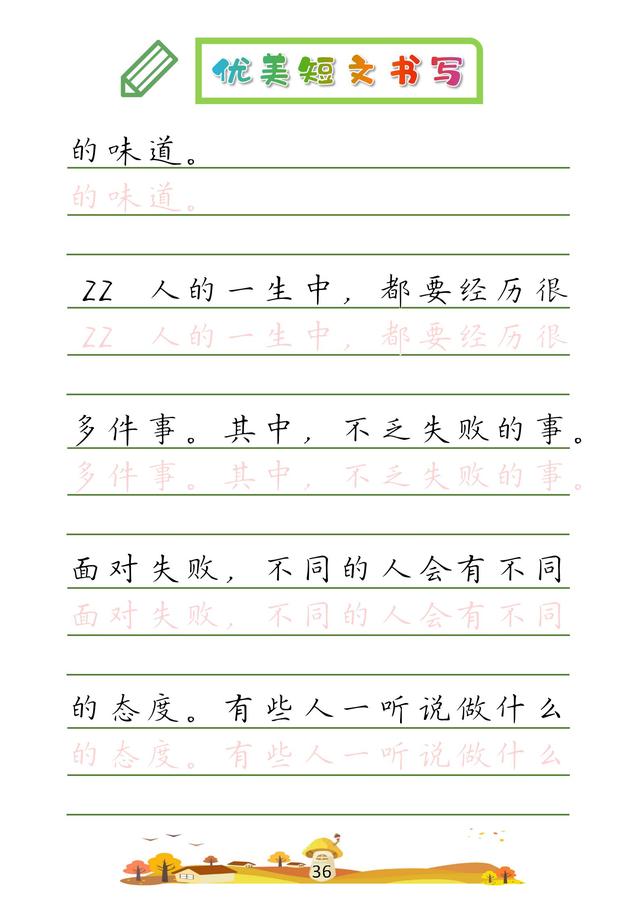 优美短文书写
的味道。
的味道。
22 人的一生中，都要经历很
22 人的一生中，都要经历很
多件事。其中，不乏失败的事。
多件事。其中，不乏失败的事。
面对失败，不同的人会有不同
面对失败，不同的人会有不同
的态度。有些人一听说做什么
的态度。有些人一听说做什么
36